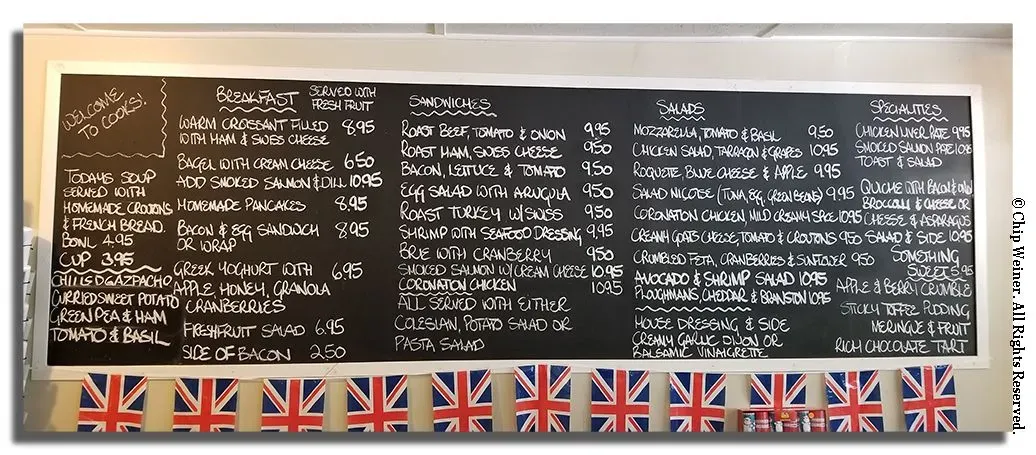 WELCOME
TO COOKS!
TODAYS SOUP
SERVED WITH
HOMEMADE CROUTONS
& FRENCH BREAD.
BOWL 4.95
CUP 3.95
CHILLSD GAZPACHO
CURRIED SWEET POTATO
GREEN PEA & HAM
TOMATO & BASIL
BREAKFAST
SERVED WITH
FRESH FRUIT
WARM CROISSANT FILLED 8.95
WITH HAM & SWISS CHEESE
BAGEL WITH CREAM CHEESE 6.50
ADD SMOKED SALMON & DILL 10.95
HOMEMADE PANCAKES 8.95
BACON & EGG SANDWICH 8.95
OR WRAP
GREEK YOGHURT WITH 6.95
APPLE, HONEY, GRANOLA
CRANBERRIES
FRESH FRUIT SALAD 6.95
SIDE OF BACON 2.50
SANDWICHES
ROAST BEEF, TOMATO & ONION 9.95
ROAST HAM, SWISS CHEESE 9.50
BACON, LETTUCE & TOMATO 9.50
EGG SALAD WITH ARUGULA 9.50
ROAST TURKEY W/ SWISS 9.50
SHRIMP WITH SEAFOOD DRESSING 9.95
BRIE WITH CRANBERRY 9.50
SMOKED SALMON W/ CREAM CHEESE 10.95
CORONATION CHICKEN 10.95
ALL SERVED WITH EITHER
COLESLAN, POTATO SALAD OR
PASTA SALAD
SALADS
MOZZARELLA, TOMATO & BASIL 9.50
CHICKEN SALAD, TARRAGON & GRAPES 10.95
ROQUETTE, BLUE CHEESE & APPLE 9.95
SALAD NICOISE (TUNA, EGG, GREEN BEANS) 9.95
CORONATION CHICKEN, MILD CREAMY SPICE 10.95
CREAMY GOATS CHEESE, TOMATO & CROUTONS 9.50
CRUMBLED FETA, CRANBERRIES & SUNFLOWER 9.50
AVOCADO & SHRIMP SALAD 10.95
PLOUGHMANS, CHEDDAR & BRANSTON 10.95
HOUSE DRESSING & SIDE
CREAMY GARLIC DIJON OR
BALSAMIC VINAIGRETTE
SPECIALITIES
CHICKEN LIVER PATE 9.95
SMOKED SALMON PATE 10.95
TOAST & SALAD
QUICHE WITH BACON & ONION
BROCCOLLI & CHEESE OR
CHEESE & ASPARAGUS
SALAD & SIDE 10.95
SOMETHING
SWEET 5.95
APPLE & BERRY CRUMBLE
STICKY TOFFEE PUDDING
MERINGUE & FRUIT
RICH CHOCOLATE TART
© Chip Weiner. All Rights Reserved.